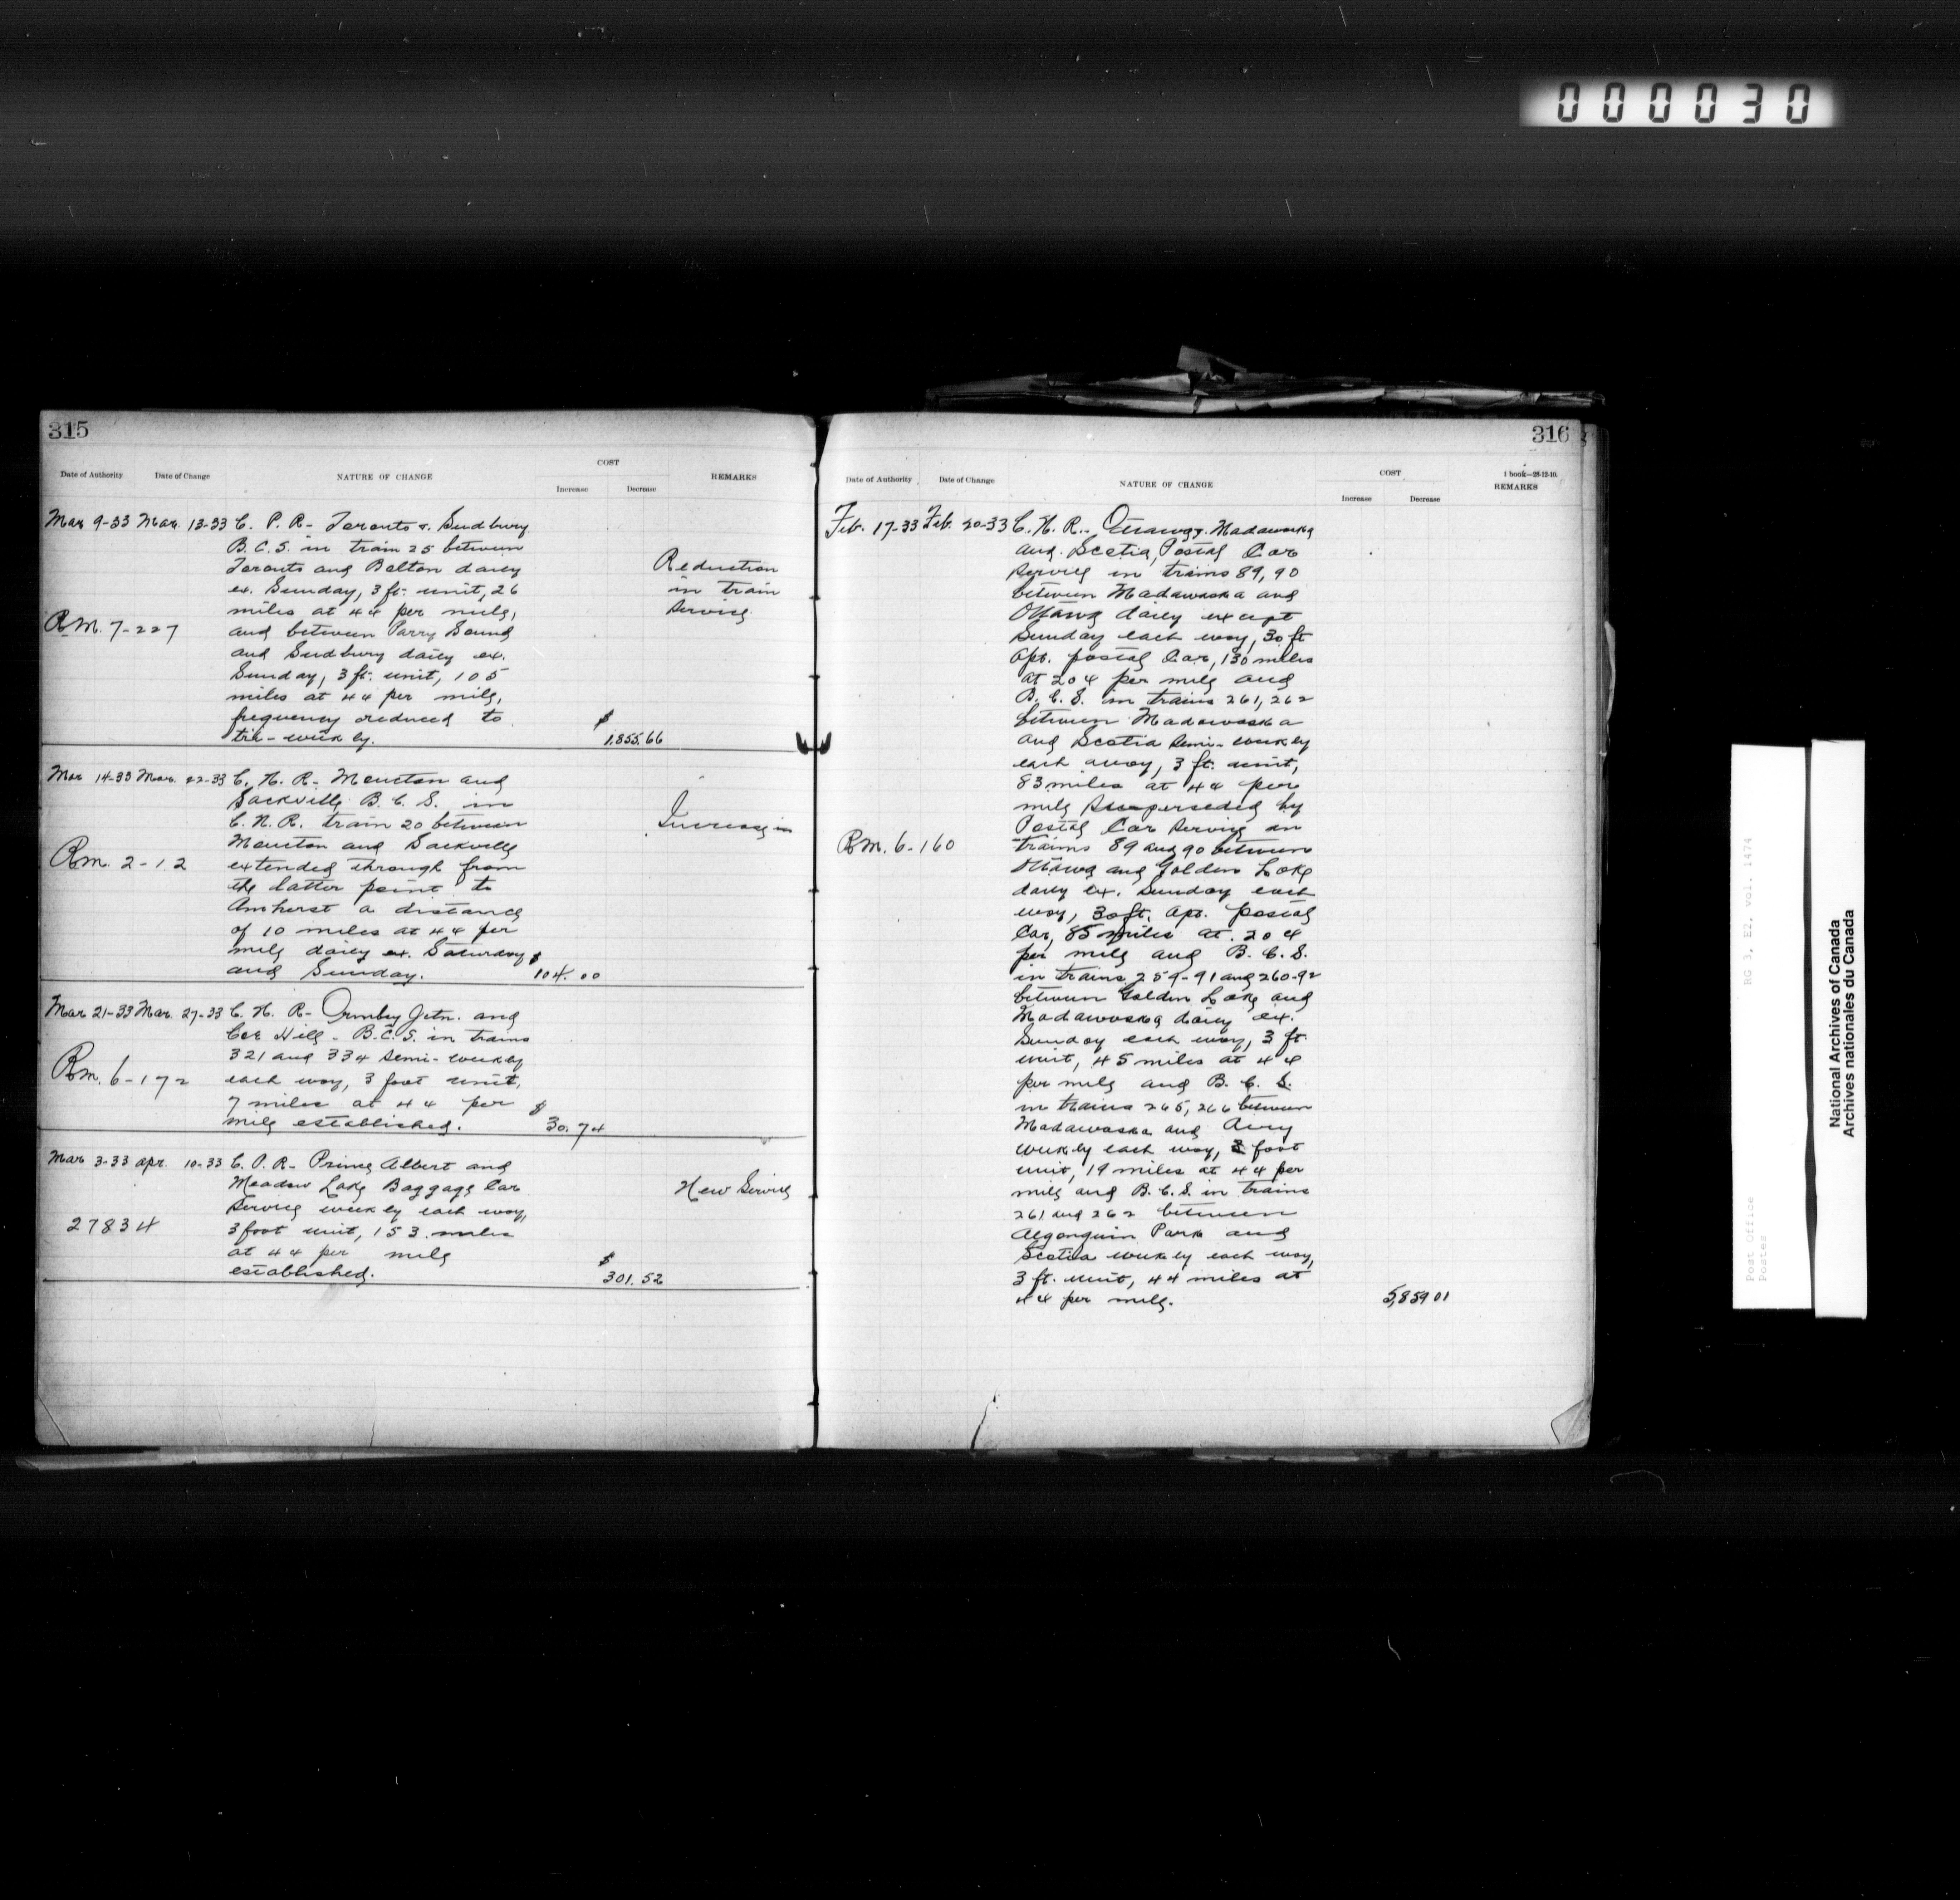 000030
315
Date of Authority Date of Change NATURE OF CHANGE COST Increase Decrease REMARKS
Mar 9-33 Mar. 13-33 C. P. R- Toronto & Sudbury
B.C.S. in train 25 between
Toronto and Bolton daily
ex. Sunday, 3 ft. unit, 26
miles at 4¢ per mile,
and between Parry Sound
and Sudbury daily ex.
Sunday, 3 ft. unit, 105
miles at 4¢ per mile,
frequency reduced to
tri-weekly. $ 1,855.66
R.M. 7-227
Reduction
in train
service
Mar 14-33 Mar. 22-33 C. N. R- Moncton and
Sackville B. C. S. in
C. N. R. train 20 between
Moncton and Sackville
extended through from
the latter point to
Amherst a distance
of 10 miles at 4¢ per
mile daily ex. Saturday
and Sunday. $ 104.00
Rm. 2-12
Increase in
Mar 21-33 Mar. 27-33 C. N. R- Ormsby Jctn. and
Coe Hill - B.C.S. in trains
321 and 334 semi-weekly
each way, 3 foot unit,
7 miles at 4¢ per
mile established. $ 30.74
Rm. 6-172
Mar 3-33 Apr. 10-33 C. P. R- Prince Albert and
Meadow Lake Baggage Car
Service weekly each way,
3 foot unit, 153 miles
at 4¢ per mile
established. $ 301.52
27834
New Service
316
1 book—28-12-10.
Date of Authority Date of Change NATURE OF CHANGE COST Increase Decrease REMARKS
Feb. 17-33 Feb. 20-33 C. N. R.- Ottawa, Madawaska
and Scotia, Postal Car
service in trains 89, 90
between Madawaska and
Ottawa daily except
Sunday each way, 30 ft
Apt. postal Car, 130 miles
at 20¢ per mile and
B. C. S. in trains 261, 262
between Madawaska
and Scotia semi-weekly
each away, 3 ft. unit,
83 miles at 4¢ per
mile superseded by
Postal Car Service on
trains 89 and 90 between
Ottawa and Golden Lake
daily ex. Sunday each
way, 30 ft. Apt. postal
Car, 85 miles at 20¢
per mile and B. C. S.
in trains 259-91 and 260-92
between Golden Lake and
Madawaska daily ex.
Sunday each way, 3 ft.
unit, 45 miles at 4¢
per mile and B. C. S.
in trains 265, 266 between
Madawaska and Airy
weekly each way, 3 foot
unit, 19 miles at 4¢ per
mile and B. C. S. in trains
261 and 262 between
Algonquin Park and
Scotia weekly each way,
3 ft. unit, 44 miles at
4¢ per mile. 5,859 01
R.M. 6-160
RG 3, E2, vol. 1474
Post Office
Postes
National Archives of Canada
Archives nationales du Canada